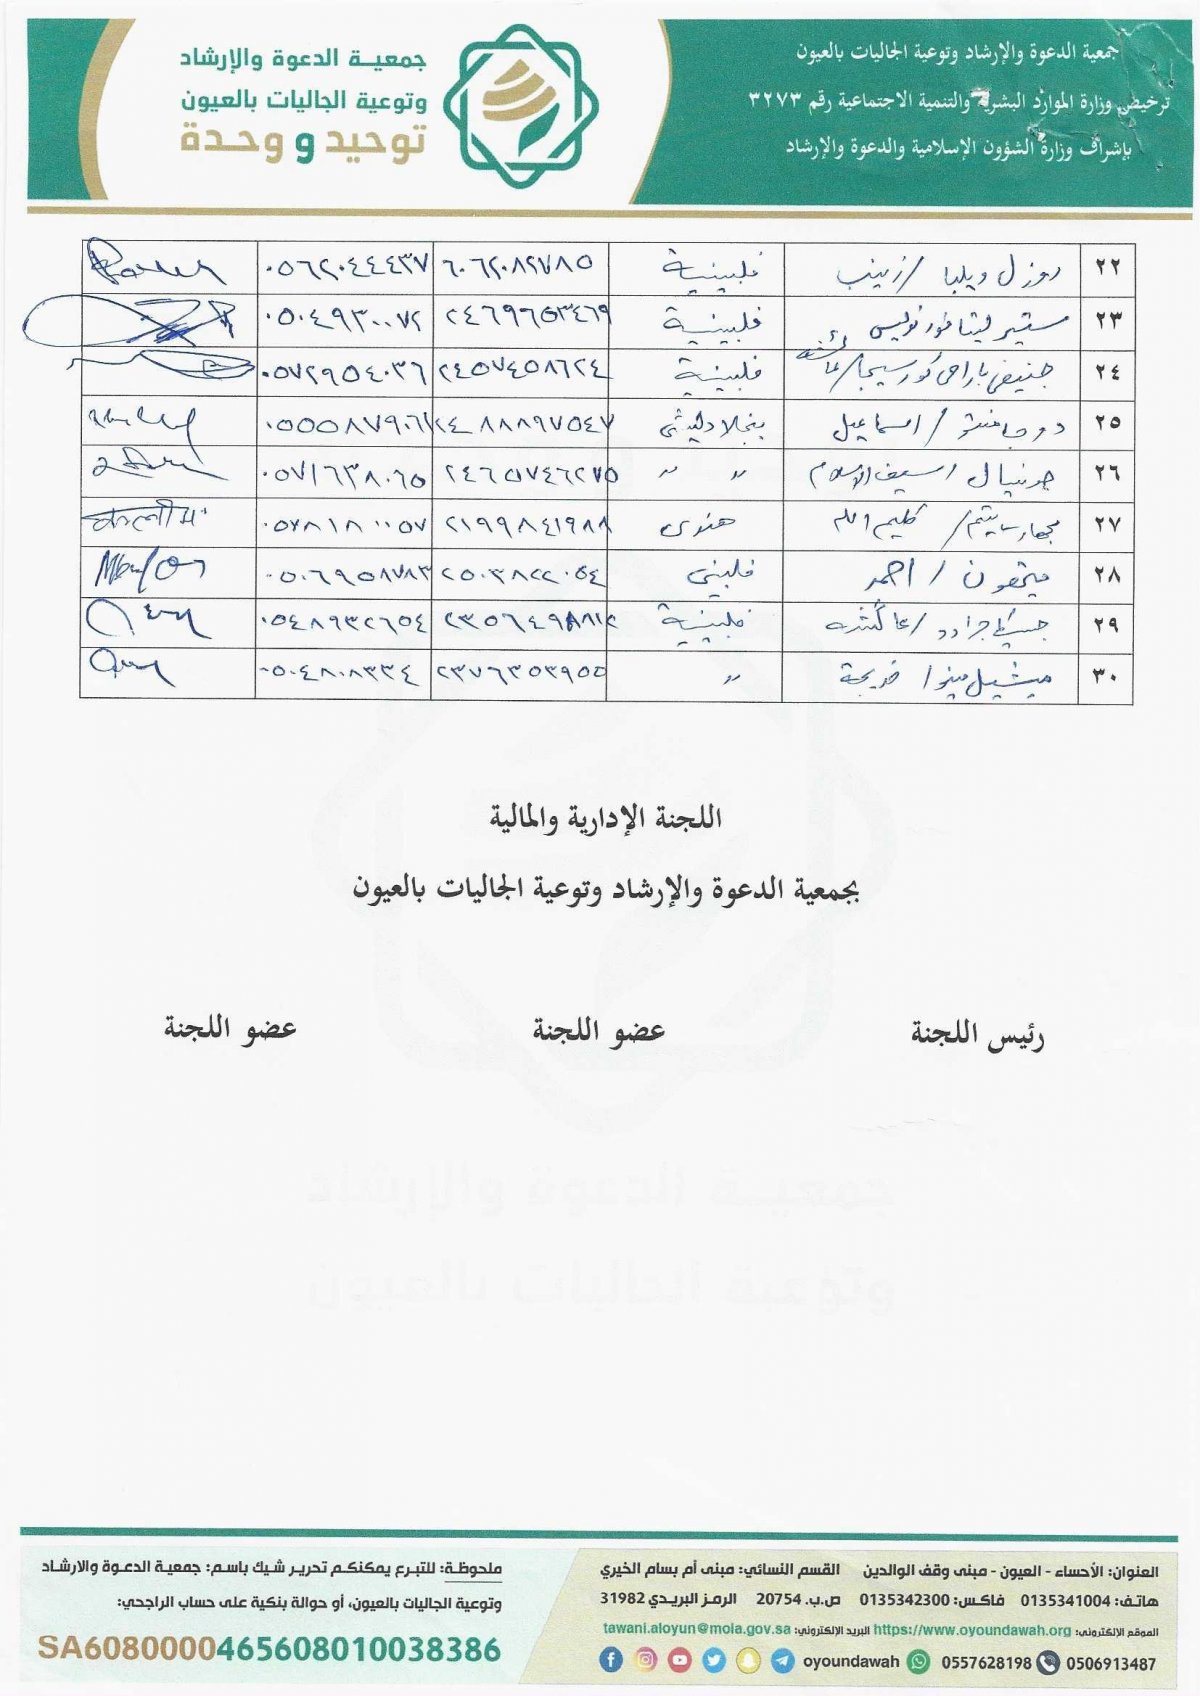 جمعية الدعوة والإرشاد وتوعية الجاليات بالعيون
ترخيص وزارة الموارد البشرية والتنمية الاجتماعية رقم ٣٢٧٣
بإشراف وزارة الشؤون الإسلامية والدعوة والإرشاد
جمعيــة الدعوة والإرشاد
وتوعية الجاليات بالعيون
توحيد و وحدة
٢٢ روزل ويلبا / زينب فلبينية ٦٠٦٢٠٨٢٧٨٥ ٠٥٦٢٠٤٤٤٣٧
٢٣ فلبينية ٢٤٦٩٦٥٣٤٦٩ ٠٥٠٤٩٣٠٠٧٢
٢٤ فلبينية ٢٤٥٧٤٥٨٦٢٤ ٠٥٧٢٩٥٤٠٣٦
٢٥ / اسماعيل ٢٤٨٨٨٩٧٥٤٧
٢٦ سيف الاسلام " " ٢٤٦٥٧٤٦٢٧٥ ٠٥٧١٦٣٨٠٦٥
٢٧ / كليم الله هندى ٢١٩٩٨٤١٩٨٨ ٠٥٧٨١٨٠٠٥٧
٢٨ / احمد فلبيني ٢٥٠٣٨٢٢٠٥٤ ٠٥٠٦٩٥٨٧٨٣
٢٩ فلبينية ٠٥٤٨٩٣٢٦٥٤
٣٠ ميشيل مينو / خديجة " ٢٣٧٦٣٥٣٩٥٥ ٠٥٠٤٨٠٨٣٣٤
اللجنة الإدارية والمالية
بجمعية الدعوة والإرشاد وتوعية الجاليات بالعيون
رئيس اللجنة
عضو اللجنة
عضو اللجنة
العنوان: الأحساء - العيون - مبنى وقف الوالدين القسم النسائي: مبنى أم بسام الخيري
هاتف: 0135341004 فاكس: 0135342300 ص.ب. 20754 الرمز البريدي 31982
الموقع الإلكتروني: https://www.oyoundawah.org البريد الإلكتروني: tawani.aloyun@moia.gov.sa
0506913487 0557628198 oyoundawah
ملحوظة: للتبرع يمكنكم تحرير شيك باسم: جمعية الدعوة والارشاد
وتوعية الجاليات بالعيون، أو حوالة بنكية على حساب الراجحي:
SA6080000465608010038386